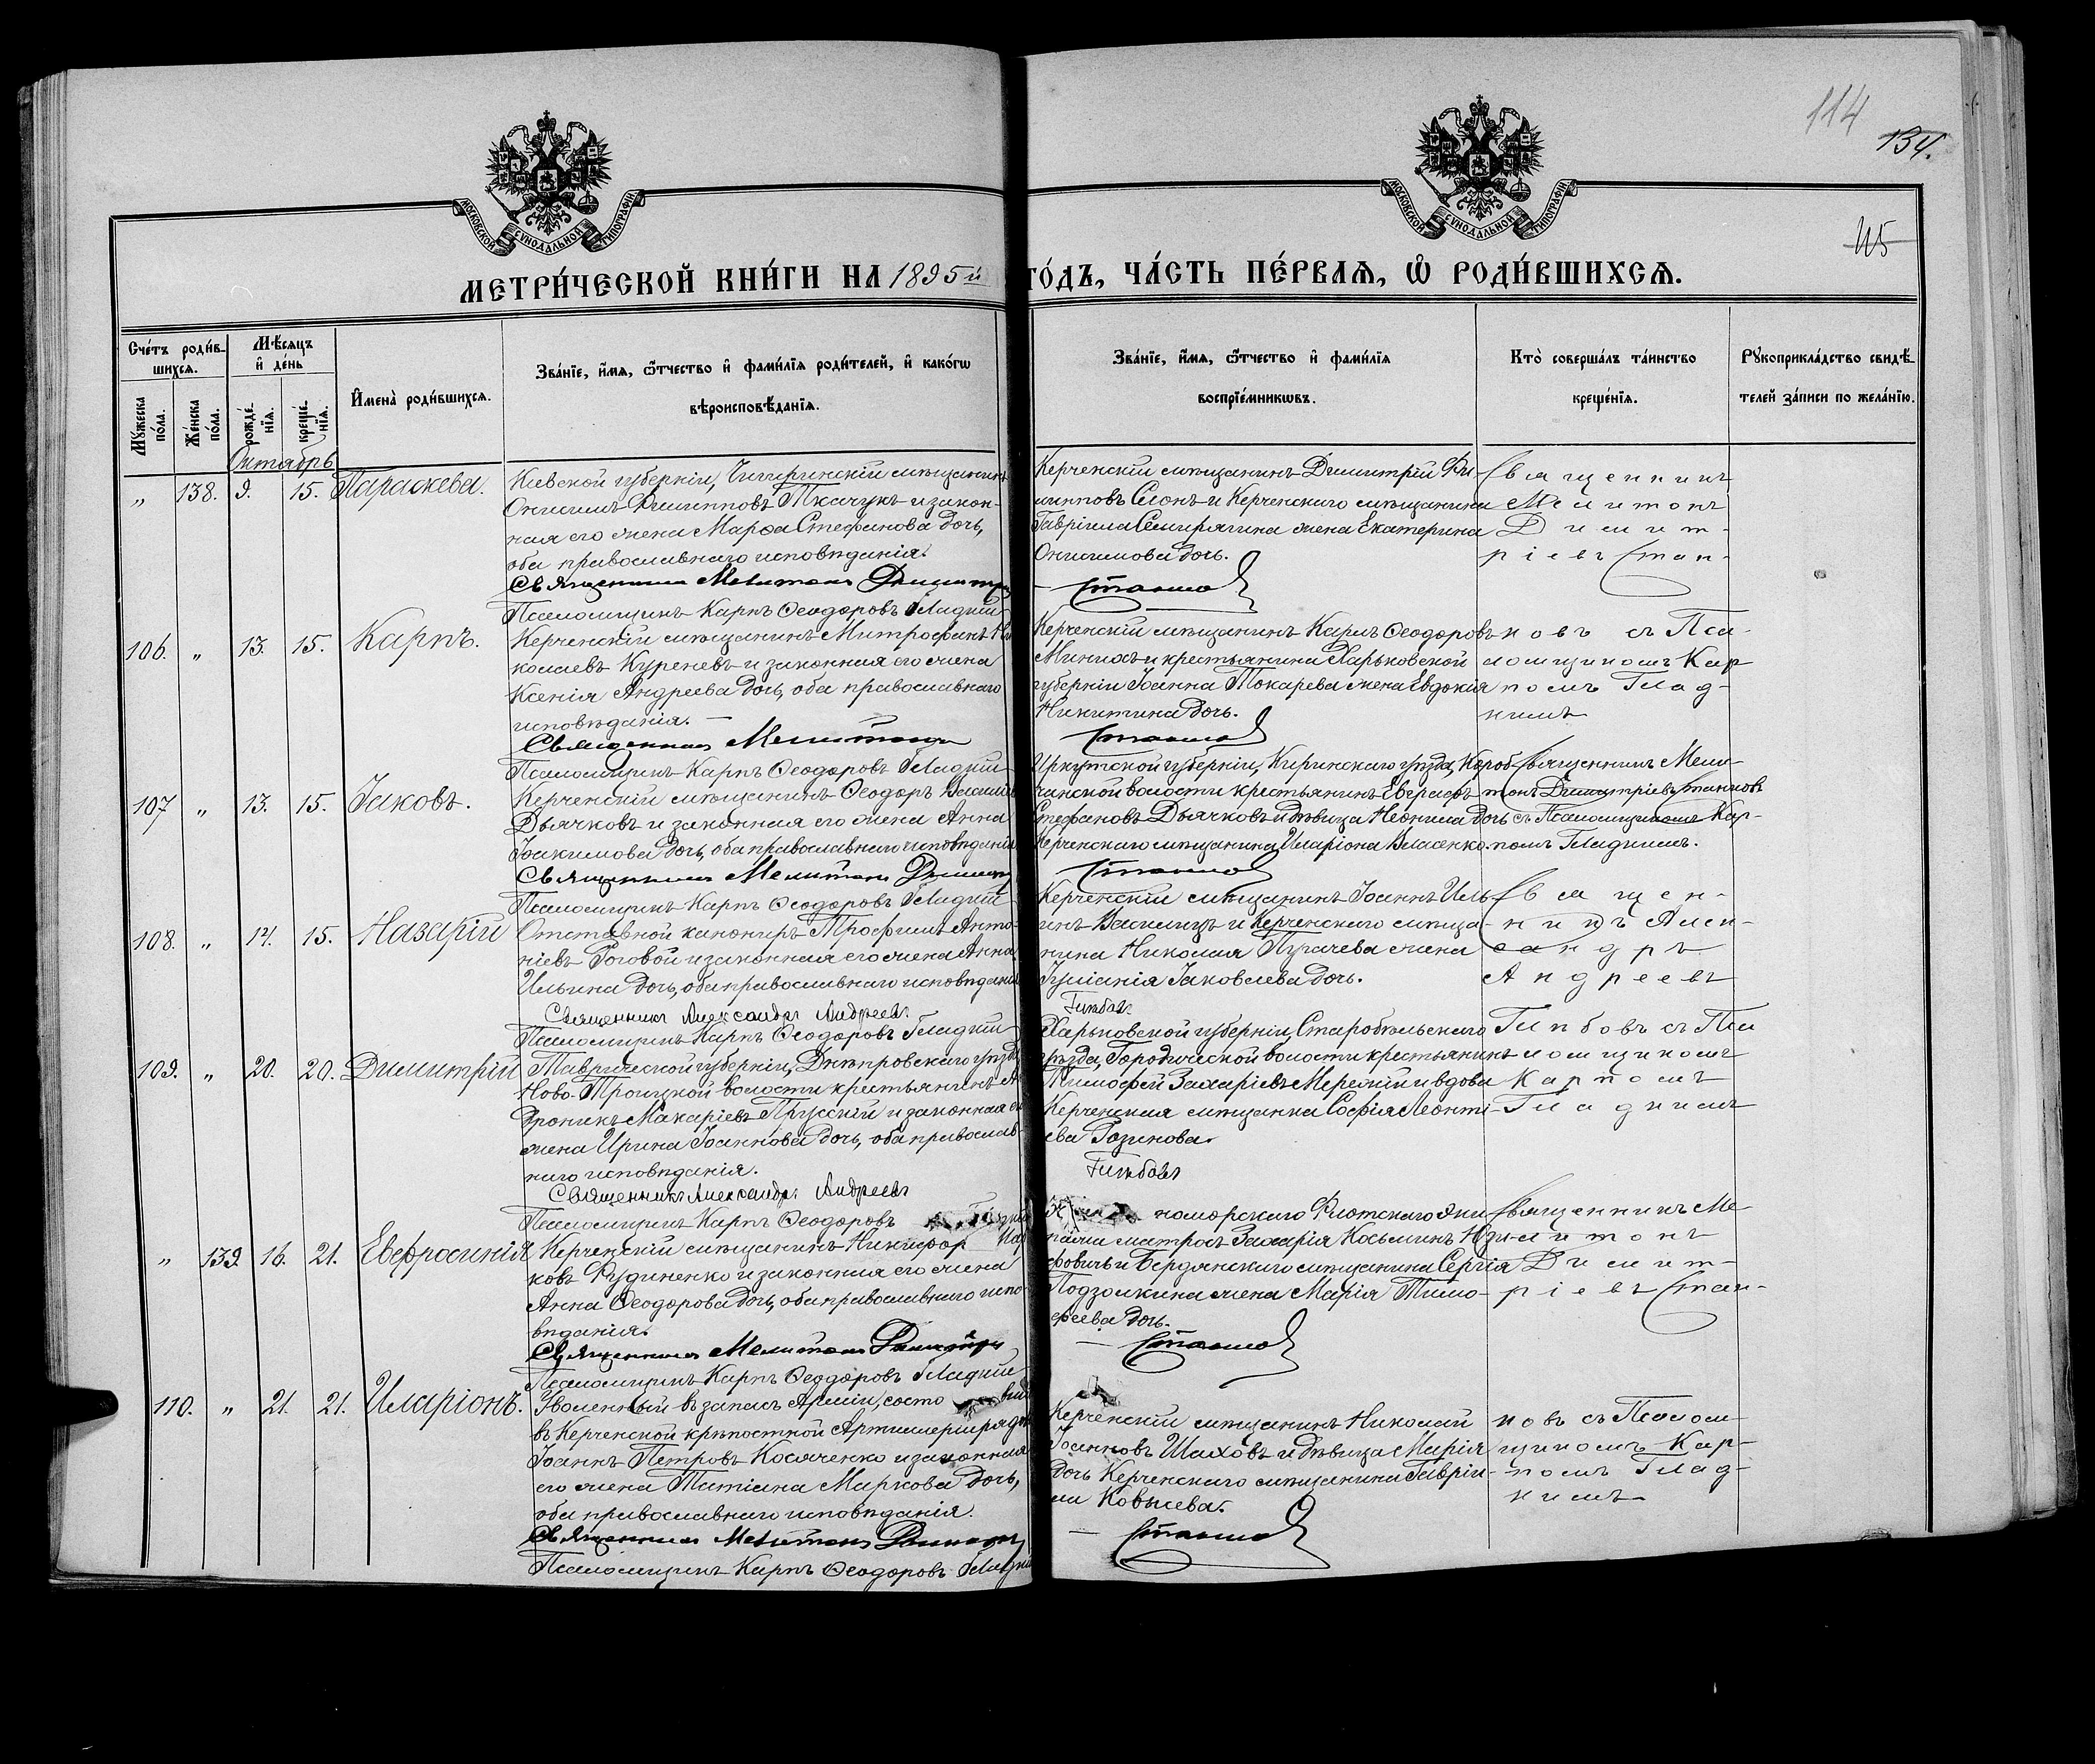 114
134.
115
МОСКОВСКОЙ СѴНОДАЛЬНОЙ ТИПОГРАФІИ
МОСКОВСКОЙ СѴНОДАЛЬНОЙ ТИПОГРАФІИ
МЕТРИ́ЧЕСКОЙ КНИ́ГИ НА 1895й ГО́ДЪ, ЧА́СТЬ ПЕ́РВАѦ, Ѡ РОДИ́ВШИХСѦ.
Сче́тъ роди́в-
шихсѧ.
Мꙋжеска по́ла.
Же́нска по́ла.
Мѣ́сѧцъ
и҆ де́нь
рожде́-
нїѧ.
креще́-
нїѧ.
И҆мена̀ роди́вшихсѧ.
Зва́нїе, и҆́мѧ, ѻ҆́тчество и҆ фами́лїѧ роди́телей, и҆ како́гѡ
вѣроисповѣ́данїѧ.
Зва́нїе, и҆́мѧ, ѻ҆́тчество и҆ фами́лїѧ
воспрїе́мникѡвъ.
Кто̀ соверша́лъ та́инство
креще́нїѧ.
Рꙋкоприкла́дство свидѣ́-
телей за́писи по жела́нїю.
Октябрь
„ 138. 9. 15. Параскева.
Кіевской губерніи, Чигиринскій мѣщанинъ
Онисимъ Филипповъ Ткачукъ и закон-
ная его жена Марѳа Стефанова дочь,
оба православнаго исповѣданія.
Священникъ Мелитонъ Димитрі
Псаломщикъ Карпъ Ѳеодоровъ Гладкій
Керченскій мѣщанинъ Димитрій Фи-
липповъ Слонъ и Керченскаго мѣщанина
Гавріила Семирягина жена Екатерина
Онисимова дочь.
Станко
Священникъ
Мелитонъ
Димит-
ріевъ Стан-
106. „ 13. 15. Карпъ.
Керченскій мѣщанинъ Митрофанъ Ни
колаевъ Куреневъ и законная его жена
Ксенія Андреева дочь, оба православнаго
исповѣданія. —
Священникъ Мелитонъ
Псаломщикъ Карпъ Ѳеодоровъ Гладкій
Керченскій мѣщанинъ Карпъ Ѳеодоровъ
и крестьянина Харьковской
губерніи Іоанна Токарева жена Евдокія
Никитина дочь.
Станко
новъ съ Пса-
ломщикомъ Кар
помъ Глад-
кимъ
107 „ 13. 15. Іаковъ.
Керченскій мѣщанинъ Ѳеодоръ Василь
Дьячковъ и законная его жена Анна
Іоакимова дочь, оба православнаго исповѣданія
Священникъ Мелитонъ Димит
Псаломщикъ Карпъ Ѳеодоровъ Гладкій
Иркутской губерніи, Киринскаго уѣзда, Короб-
чанской волости крестьянинъ
Стефановъ Дьячковъ и дѣвица Неонила дочь
Керченскаго мѣщанина Иларіона Власенко.
Станко
Священникъ Мели-
тонъ Димитріевъ Станковъ
съ Псаломщикомъ Кар-
помъ Гладкимъ.
108. „ 14. 15. Назарій
Отставной канониръ Трофимъ Анто-
ніевъ Роговой и законная его жена Анна
Ильина дочь, оба православнаго исповѣданія
Священникъ Александръ Андреевъ
Псаломщикъ Карпъ Ѳеодоровъ Гладкій
Керченскій мѣщанинъ Іоаннъ Иль-
инъ Василицъ и Керченскаго мѣща-
нина Николая Пугачева жена
Іуліанія Іаковлева дочь.
Гинбовъ
Священ-
никъ Алек-
сандръ
Андреевъ
109. „ 20. 20. Димитрій
Таврической губерніи, Днѣпровскаго уѣзда
Ново-Троицкой волости крестьянинъ Ан
дроникъ Макаріевъ Прусскій и законная его
жена Ирина Іоаннова дочь, оба православ-
наго исповѣданія.
Священникъ Александръ Андреевъ
Псаломщикъ Карпъ Ѳеодоровъ
Харьковской губерніи, Старобѣльскаго
уѣзда, Городической волости крестьянинъ
Тимофей Захаріевъ Мережній и вдова
Керченская мѣщанка Софія Леонті-
ева Розинова.
Гинбовъ
Гинбовъ съ Пса
ломщикомъ
Карпомъ
Гладкимъ
„ 139 16. 21. Евфросинія
Керченскій мѣщанинъ Никифор Мар
ковъ Рудиненко и законная его жена
Анна Ѳеодорова дочь, оба православнаго испо-
вѣданія.
Священникъ Мелитонъ Димитрі
Псаломщикъ Карпъ Ѳеодоровъ Гладкій
номорскаго Флотскаго эки
пажа матросъ Захарія Косьминъ Юзе-
фовичъ и Бердянскаго мѣщанина Сергія
Подзолкина жена Марія Тимо-
феева дочь.
Станко
Священникъ Ме-
литонъ
Димит-
ріевъ Стан-
110. „ 21. 21. Иларіонъ.
Уволенный въ запасъ Арміи, состо вшій
въ Керченской крѣпостной Артиллеріи рядов
Іоаннъ Петровъ Косяченко и законная
его жена Татіана Маркова дочь,
оба православнаго исповѣданія.
Священникъ Мелитонъ Димитр
Псаломщикъ Карпъ Ѳеодоровъ Гладкій
Керченскій мѣщанинъ Николай
Іоанновъ Шаховъ и дѣвица Марія
дочь Керченскаго мѣщанина Гаврі-
ла Ковылева.
Станко
новъ съ Псалом-
щикомъ Кар-
помъ Глад-
кимъ